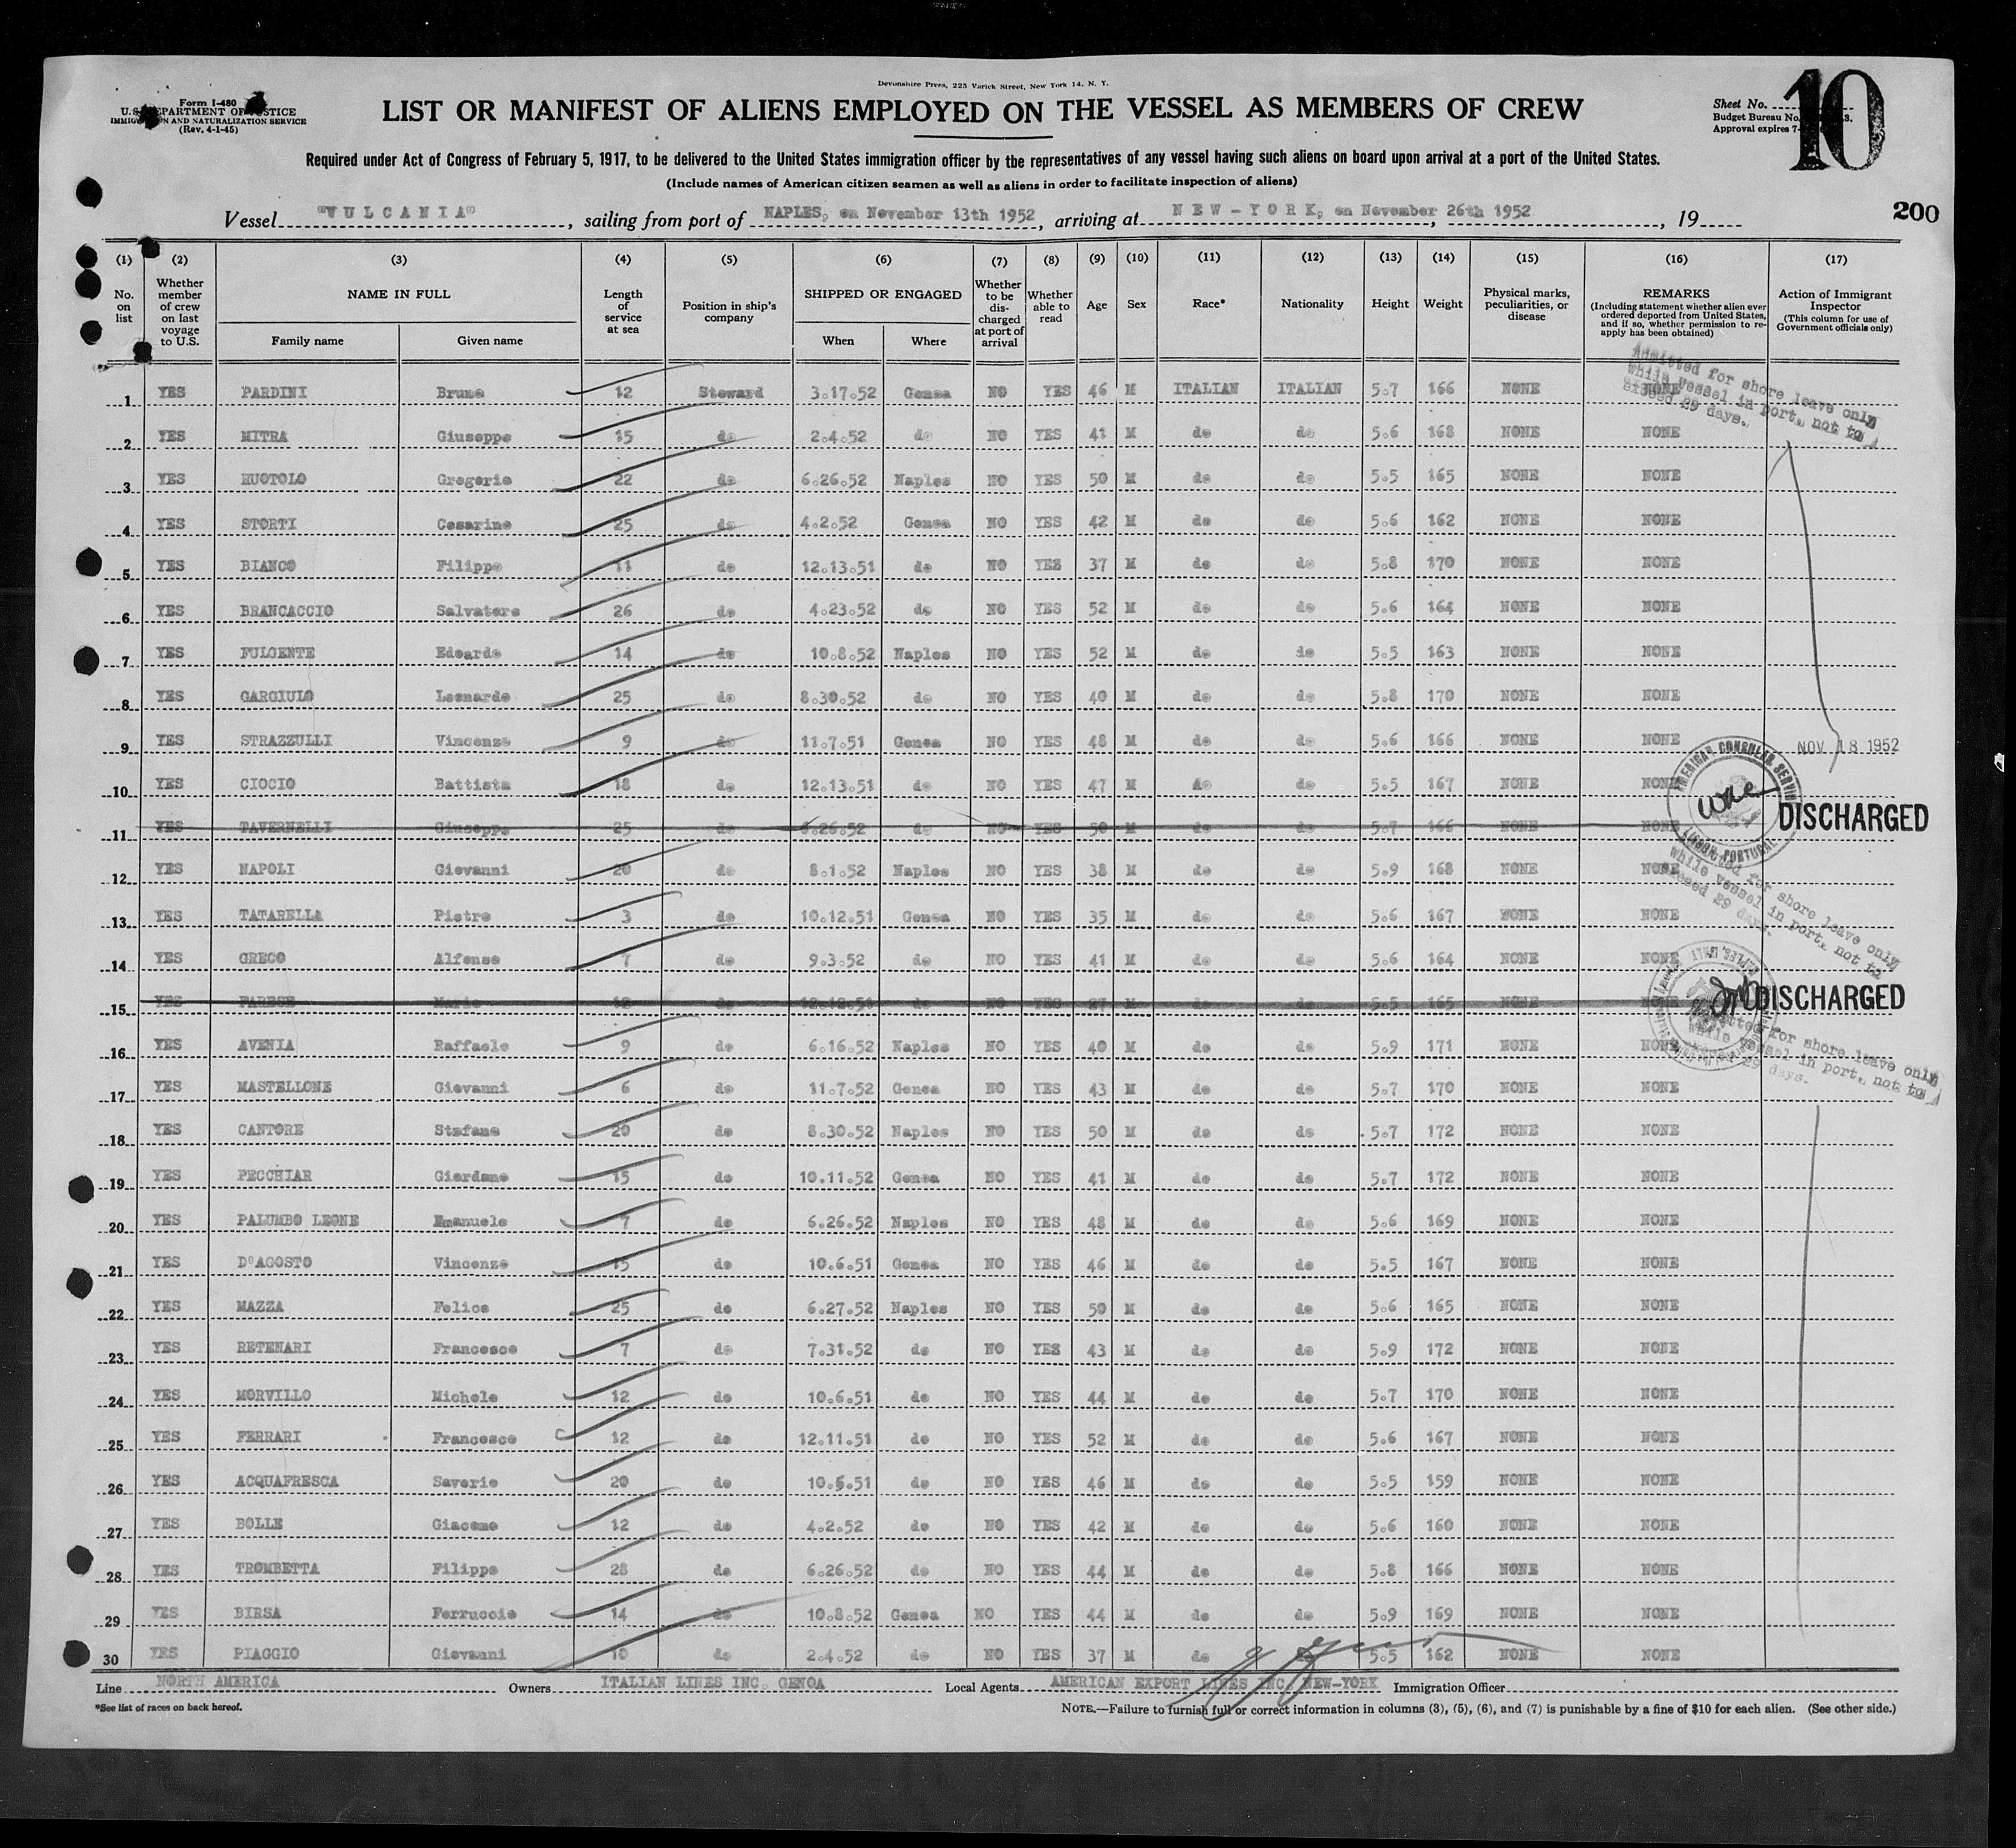 Devonshire Press, 225 Varick Street, New York 14, N. Y.
Form I-480
U.S. DEPARTMENT OF JUSTICE
IMMIGRATION AND NATURALIZATION SERVICE
(Rev. 4-1-45)
LIST OR MANIFEST OF ALIENS EMPLOYED ON THE VESSEL AS MEMBERS OF CREW
Sheet No.
Budget Bureau No.
Approval expires 7-
10
Required under Act of Congress of February 5, 1917, to be delivered to the United States immigration officer by the representatives of any vessel having such aliens on board upon arrival at a port of the United States.
(Include names of American citizen seamen as well as aliens in order to facilitate inspection of aliens)
Vessel "VULCANIA", sailing from port of NAPLES, on November 13th 1952, arriving at NEW-YORK, on November 26th 1952, 19
200
(1) (2) (3) (4) (5) (6) (7) (8) (9) (10) (11) (12) (13) (14) (15) (16) (17)
No. on list
Whether member of crew on last voyage to U.S.
NAME IN FULL
Family name Given name
Length of service at sea
Position in ship's company
SHIPPED OR ENGAGED
When Where
Whether to be discharged at port of arrival
Whether able to read
Age
Sex
Race*
Nationality
Height
Weight
Physical marks, peculiarities, or disease
REMARKS
(Including statement whether alien ever ordered deported from United States, and if so, whether permission to reapply has been obtained)
Action of Immigrant Inspector
(This column for use of Government officials only)
Admitted for shore leave only
while vessel in port, not to
exceed 29 days.
1 YES PARDINI Bruno 12 Steward 3.17.52 Genoa NO YES 46 M ITALIAN ITALIAN 5.7 166 NONE NONE
2 YES MITRA Giuseppe 15 do 2.4.52 do NO YES 41 M do do 5.6 168 NONE NONE
3 YES MUOTOLO Gregorio 22 do 6.26.52 Naples NO YES 50 M do do 5.5 165 NONE NONE
4 YES STORTI Cesarino 25 do 4.2.52 Genoa NO YES 42 M do do 5.6 162 NONE NONE
5 YES BIANCO Filippo 11 do 12.13.51 do NO YES 37 M do do 5.8 170 NONE NONE
6 YES BRANCACCIO Salvatore 26 do 4.23.52 do NO YES 52 M do do 5.6 164 NONE NONE
7 YES FULGENTE Edoardo 14 do 10.8.52 Naples NO YES 52 M do do 5.5 163 NONE NONE
8 YES GARGIULO Leonardo 25 do 8.30.52 do NO YES 40 M do do 5.8 170 NONE NONE
9 YES STRAZZULLI Vincenzo 9 do 11.7.51 Genoa NO YES 48 M do do 5.6 166 NONE NONE NOV 18 1952
10 YES CIOCIO Battista 18 do 12.13.51 do NO YES 47 M do do 5.5 167 NONE NONE
AMERICAN CONSULAR SERVICE LISBON PORTUGAL
11 YES TAVERNELLI Giuseppe 25 do 6.26.52 do NO YES 50 M do do 5.7 166 NONE NONE DISCHARGED
12 YES NAPOLI Giovanni 20 do 8.1.52 Naples NO YES 38 M do do 5.9 168 NONE NONE
Admitted for shore leave only
while vessel in port, not to
exceed 29 days.
13 YES TATARELLA Pietro 3 do 10.12.51 Genoa NO YES 35 M do do 5.6 167 NONE NONE
14 YES GRECO Alfonso 7 do 9.3.52 do NO YES 41 M do do 5.6 164 NONE NONE
15 YES PARESE Mario 12 do 12.12.51 do NO YES 27 M do do 5.5 165 NONE NONE DISCHARGED
Admitted for shore leave only
while vessel in port, not to
exceed 29 days.
16 YES AVENIA Raffaele 9 do 6.16.52 Naples NO YES 40 M do do 5.9 171 NONE NONE
17 YES MASTELLONE Giovanni 6 do 11.7.52 Genoa NO YES 43 M do do 5.7 170 NONE NONE
18 YES CANTORE Stefano 20 do 8.30.52 Naples NO YES 50 M do do 5.7 172 NONE NONE
19 YES PECCHIAR Giordano 15 do 10.11.52 Genoa NO YES 41 M do do 5.7 172 NONE NONE
20 YES PALUMBO LEONE Emanuele 7 do 6.26.52 Naples NO YES 48 M do do 5.6 169 NONE NONE
21 YES D'AGOSTO Vincenzo 15 do 10.6.51 Genoa NO YES 46 M do do 5.5 167 NONE NONE
22 YES MAZZA Felice 25 do 6.27.52 Naples NO YES 50 M do do 5.6 165 NONE NONE
23 YES RETENARI Francesco 7 do 7.31.52 do NO YES 43 M do do 5.9 172 NONE NONE
24 YES MORVILLO Michele 12 do 10.6.51 do NO YES 44 M do do 5.7 170 NONE NONE
25 YES FERRARI Francesco 12 do 12.11.51 do NO YES 52 M do do 5.6 167 NONE NONE
26 YES ACQUAFRESCA Saverio 20 do 10.6.51 do NO YES 46 M do do 5.5 159 NONE NONE
27 YES BOLLE Giacomo 12 do 4.2.52 do NO YES 42 M do do 5.6 160 NONE NONE
28 YES TROMBETTA Filippo 28 do 6.26.52 do NO YES 44 M do do 5.8 166 NONE NONE
29 YES BIRSA Ferruccio 14 do 10.8.52 Genoa NO YES 44 M do do 5.9 169 NONE NONE
30 YES PIAGGIO Giovanni 10 do 2.4.52 do NO YES 37 M do 5.5 162 NONE NONE
Line NORTH AMERICA Owners ITALIAN LINES INC. GENOA Local Agents AMERICAN EXPORT LINES INC. NEW-YORK Immigration Officer
*See list of races on back hereof.
NOTE.—Failure to furnish full or correct information in columns (3), (5), (6), and (7) is punishable by a fine of $10 for each alien. (See other side.)